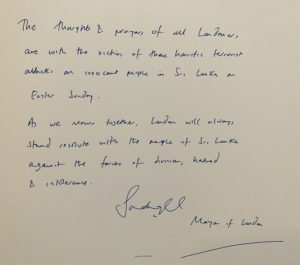 The thoughts & prayers of all Londoners
are with the victims of these horrific terrorist
attacks on innocent people in Sri Lanka on
Easter Sunday.
As we mourn together, London will always
stand resolute with the people of Sri Lanka
against the forces of terrorism, hatred
& intolerance.
Mayor of London